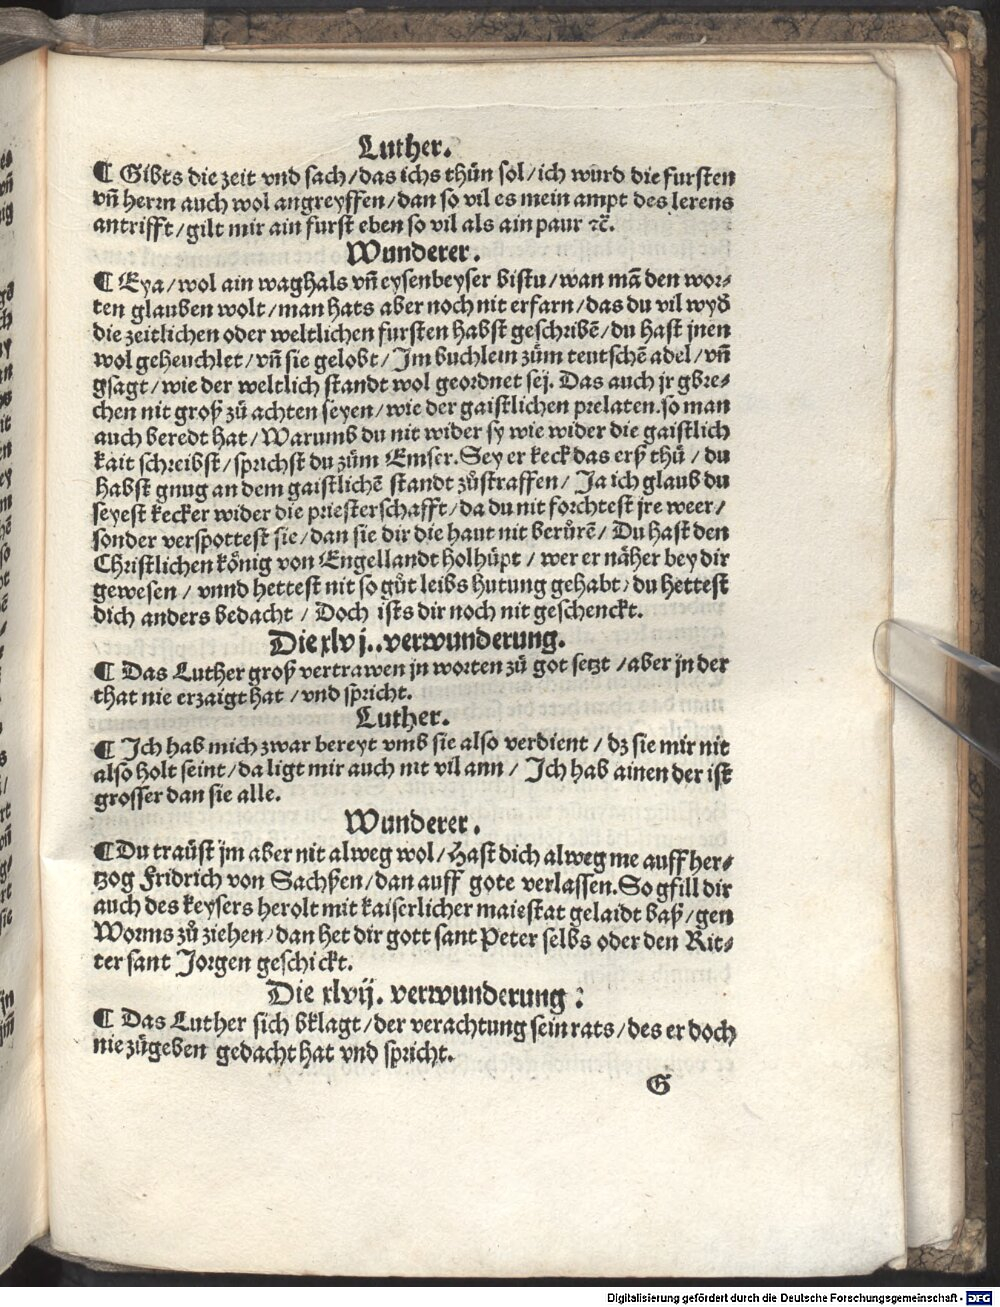 Luther.
¶ Gibts die zeit vnd sach/das ichs thün sol/ich würd die fursten
vñ herrn auch wol angreyffen/dan so vil es mein ampt des lerens
antrifft/gilt mir ain furst eben so vil als ain paur ⁊c̃.
Wunderer.
¶ Eya/wol ain waghals vñ eysenbeyser bistu/wan mã den wor⸗
ten glauben wolt/man hats aber noch nit erfarn/das du vil wyð
die zeitlichen oder weltlichen fursten habst geschribẽ/du hast jnen
wol geheuchlet/vñ sie gelobt/Jm buchlein züm teutschẽ adel/vñ
gsagt/wie der weltlich standt wol geordnet sej. Das auch jr gbre⸗
chen nit groß zü achten seyen/wie der gaistlichen prelaten.so man
auch beredt hat/Warumb du nit wider sy wie wider die gaistlich
kait schreibst/sprichst du züm Emser.Sey er keck das erß thü/du
habst gnug an dem gaistlichẽ standt zůstraffen/Ja ich glaub du
seyest kecker wider die priesterschafft/da du nit forchtest jre weer/
sonder verspottest sie/dan sie dir die haut nit berůrẽ/Du hast den
Christlichen könig von Engellandt holhüpt/wer er näher bey dir
gewesen/vnnd hettest nit so güt leibs hutung gehabt/du hettest
dich anders bedacht/Doch ists dir noch nit geschenckt.
Die xlvj..verwunderung.
¶ Das Luther groß vertrawen jn worten zü got setzt/aber jn der
that nie erzaigt hat/vnd spricht.
Luther.
¶ Jch hab mich zwar bereyt vmb sie also verdient/dz sie mir nit
also holt seint/da ligt mir auch nit vil ann/Jch hab ainen der ist
grosser dan sie alle.
Wunderer.
¶ Du traüst jm aber nit alweg wol/Hast dich alweg me auff her⸗
tzog Fridrich von Sachßen/dan auff gote verlassen.So gfill dir
auch des keysers herolt mit kaiserlicher maiestat gelaidt baß/gen
Worms zů ziehen/dan het dir gott sant Peter selbs oder den Rit⸗
ter sant Jorgen geschickt.
Die xlvij. verwunderung:
¶ Das Luther sich bklagt/der verachtung sein rats/des er doch
nie zügeben gedacht hat vnd spricht.
G
Digitalisierung gefördert durch die Deutsche Forschungsgemeinschaft - DFG